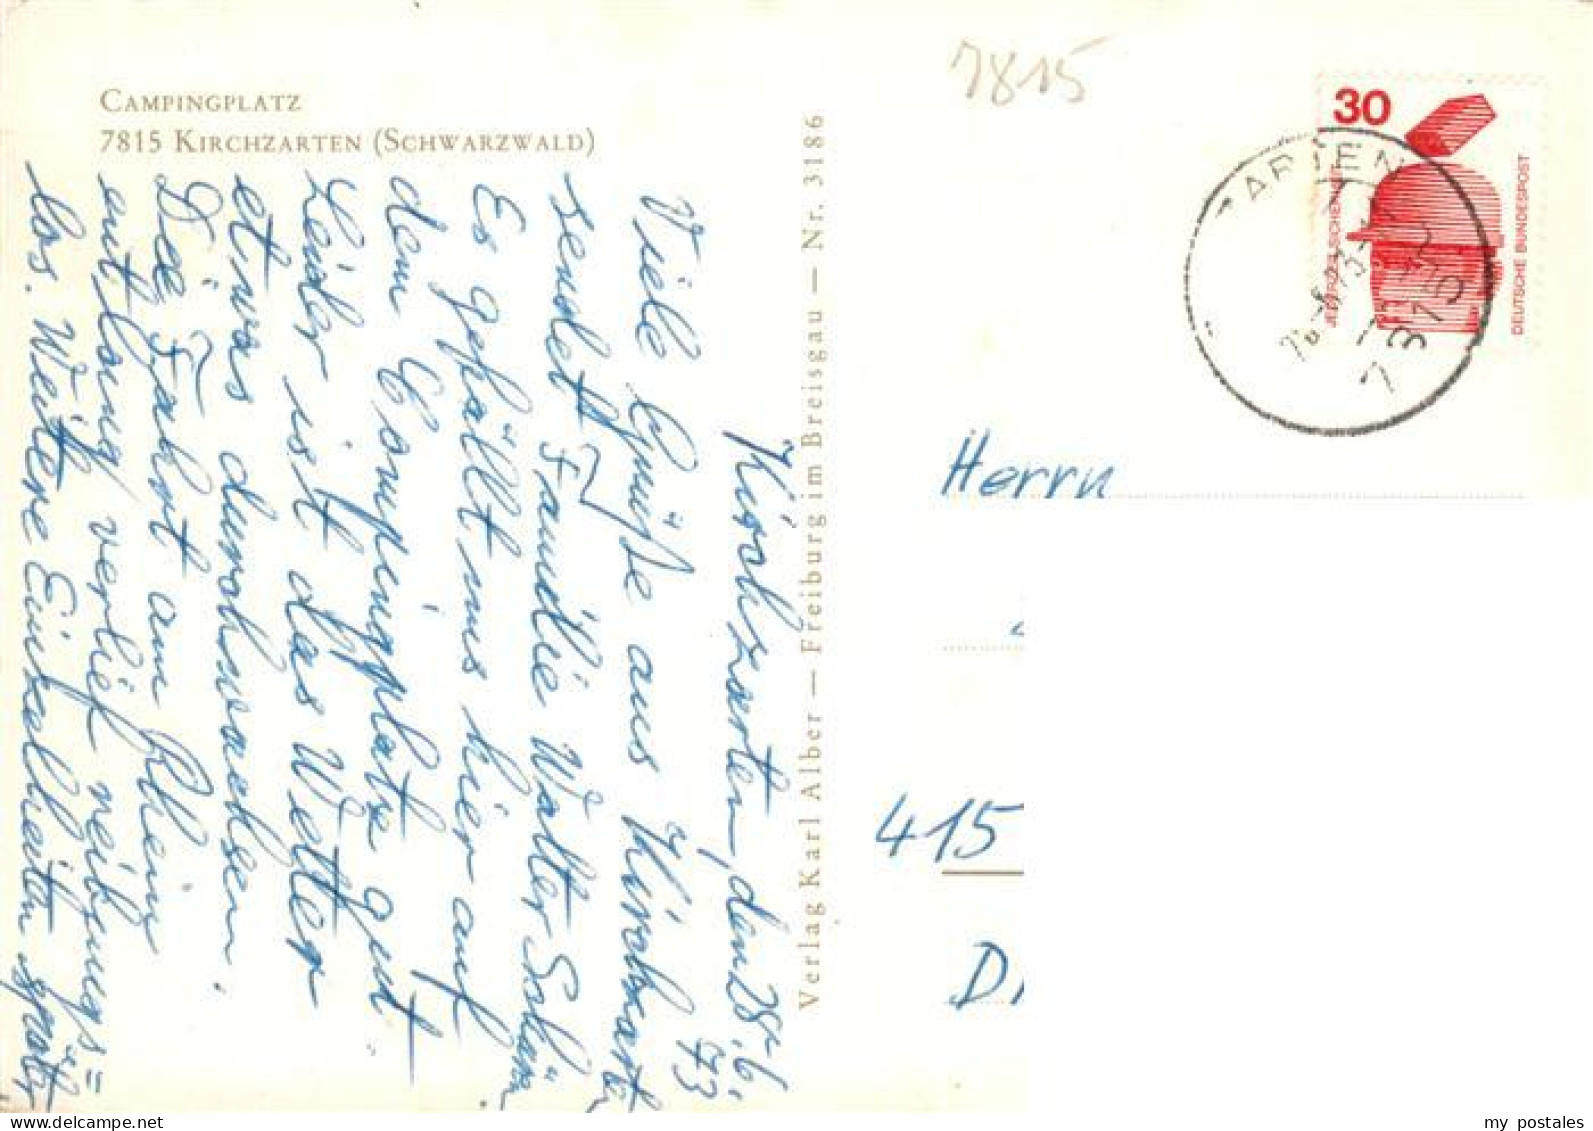 CAMPINGPLATZ
7815 KIRCHZARTEN (SCHWARZWALD)
Kirchzarten, den 28.6.
73
Viele Grüße aus Kirchzarten
sendet Familie Walter
Es gefällt uns hier auf
dem Campingplatz gut.
Leider ist das Wetter
etwas durchwachsen.
Die Fahrt am Rhein
entlang verlief reibungs=
los. Weitere Einzelheiten später
Verlag Karl Alber — Freiburg im Breisgau — Nr. 3186
7815
30
JEDERZEIT SICHERHEIT
DEUTSCHE BUNDESPOST
ARTEN
7815
Herrn
415
D
my postales